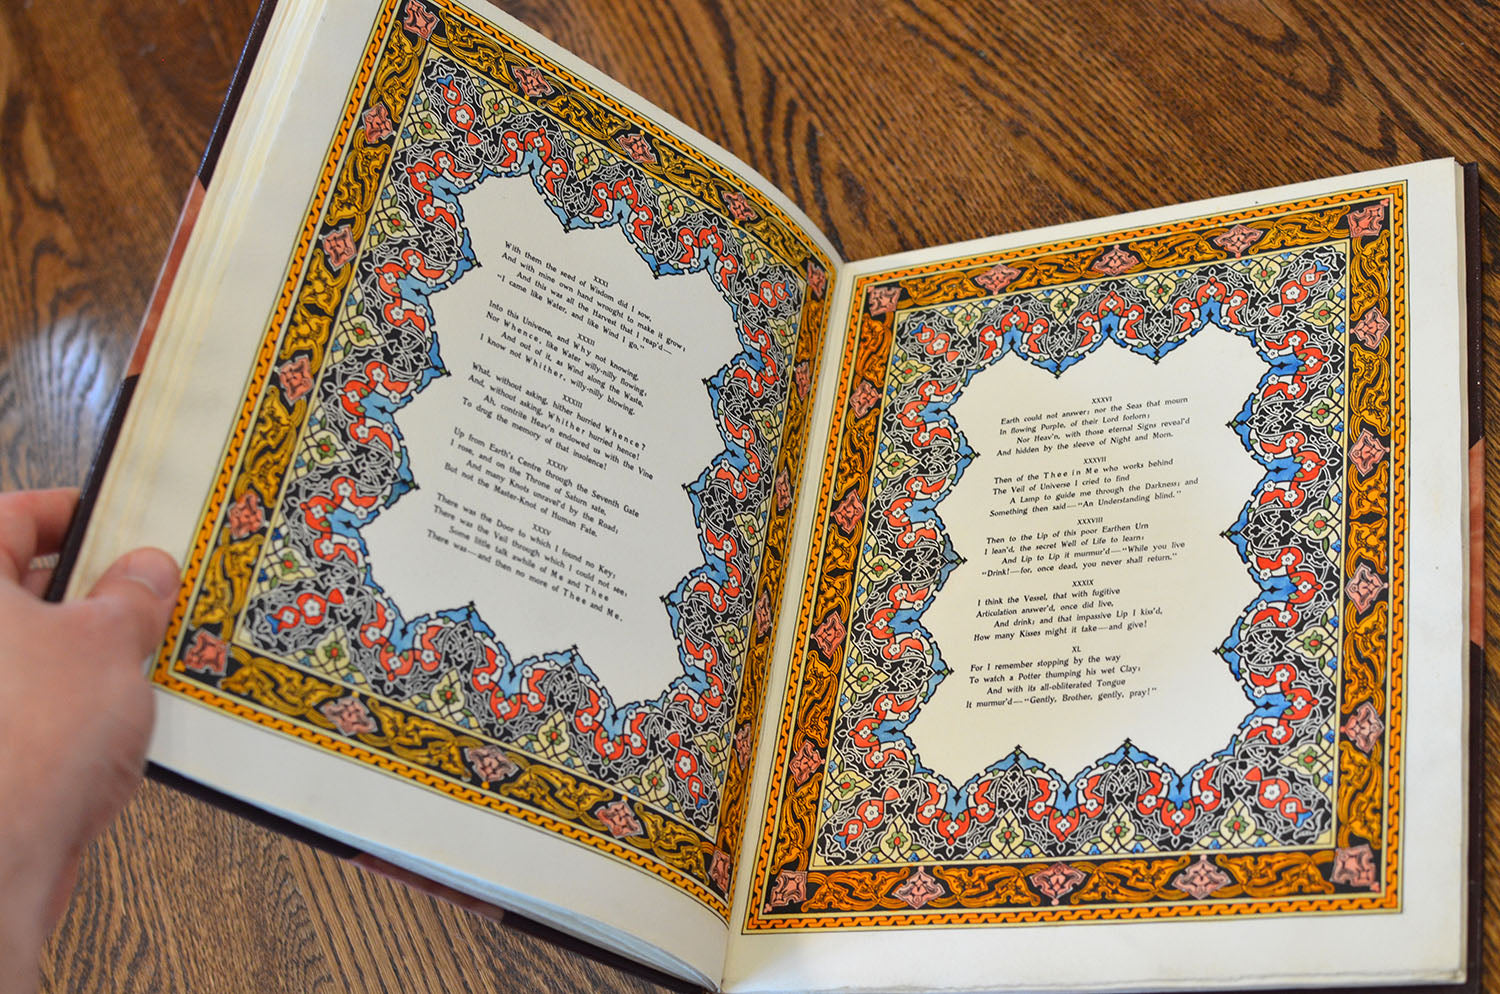 XXXI
With them the seed of Wisdom did I sow,
And with mine own hand wrought to make it grow;
And this was all the Harvest that I reap'd—
"I came like Water, and like Wind I go."
XXXII
Into this Universe, and Why not knowing,
Nor Whence, like Water willy-nilly flowing;
And out of it, as Wind along the Waste,
I know not Whither, willy-nilly blowing.
XXXIII
What, without asking, hither hurried Whence?
And, without asking, Whither hurried hence!
Ah, contrite Heav'n endowed us with the Vine
To drug the memory of that insolence!
XXXIV
Up from Earth's Centre through the Seventh Gate
I rose, and on the Throne of Saturn sate,
And many Knots unravel'd by the Road;
But not the Master-Knot of Human Fate.
XXXV
There was the Door to which I found no Key;
There was the Veil through which I could not see:
Some little talk awhile of Me and Thee
There was—and then no more of Thee and Me.
XXXVI
Earth could not answer; nor the Seas that mourn
In flowing Purple, of their Lord forlorn;
Nor Heav'n, with those eternal Signs reveal'd
And hidden by the sleeve of Night and Morn.
XXXVII
Then of the Thee in Me who works behind
The Veil of Universe I cried to find
A Lamp to guide me through the Darkness; and
Something then said—"An Understanding blind."
XXXVIII
Then to the Lip of this poor Earthen Urn
I lean'd, the secret Well of Life to learn:
And Lip to Lip it murmur'd—"While you live
"Drink!—for, once dead, you never shall return."
XXXIX
I think the Vessel, that with fugitive
Articulation answer'd, once did live,
And drink; and that impassive Lip I kiss'd,
How many Kisses might it take—and give!
XL
For I remember stopping by the way
To watch a Potter thumping his wet Clay;
And with its all-obliterated Tongue
It murmur'd—"Gently, Brother, gently, pray!"